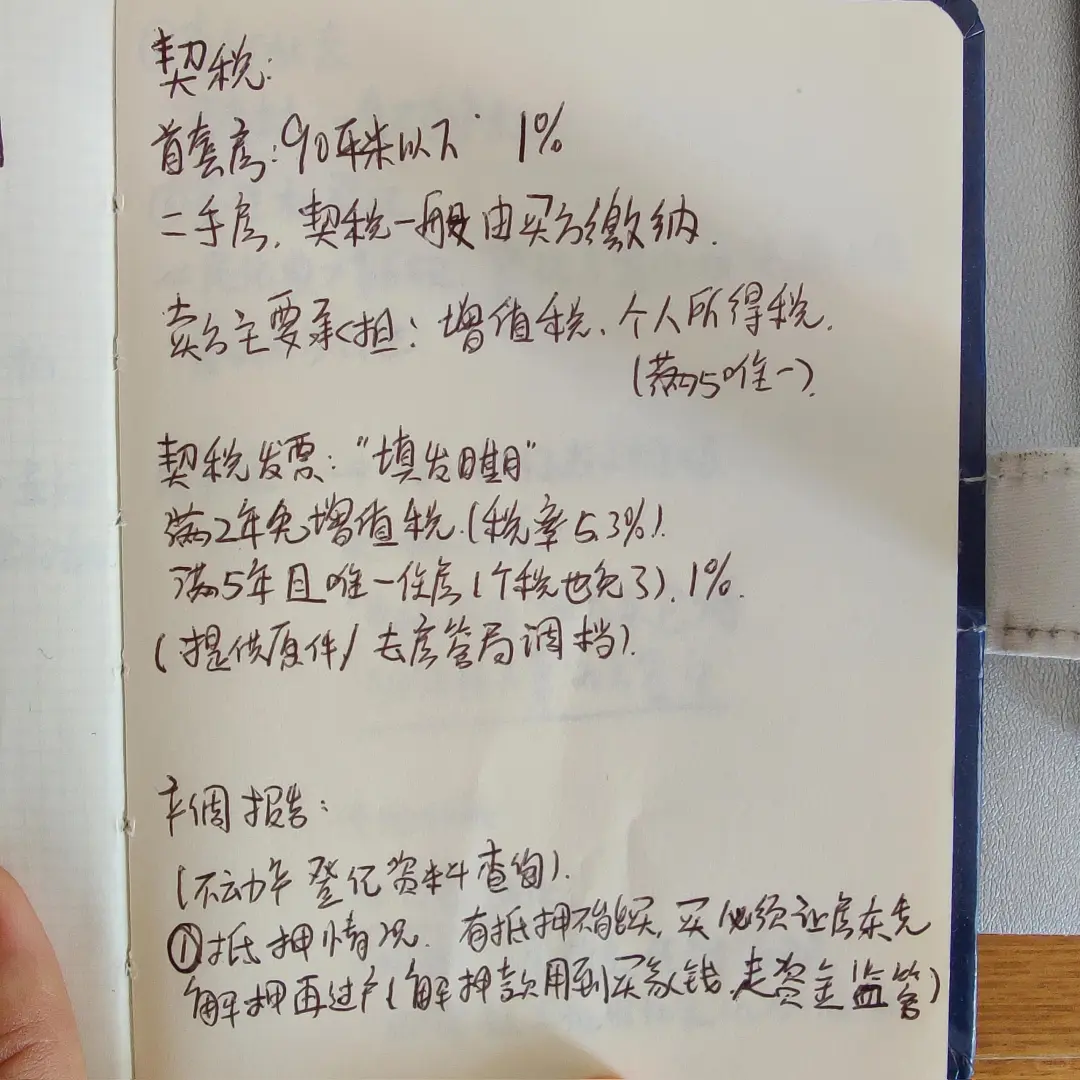 契税:
首套房:90平米以下 1%
二手房,契税一般由买方缴纳.
卖方主要承担:增值税、个人所得税.
(满5唯一).
契税发票:"填发日期"
满2年免增值税.(税率5.3%).
满5年且唯一住房(个税也免了).1%.
(提供原件/去房管局调挡).
产调报告:
(不动产登记资料查询).
①抵押情况. 有抵押不能买,买必须让房东先
解押再过户(解押款用到买家钱.走资金监管)